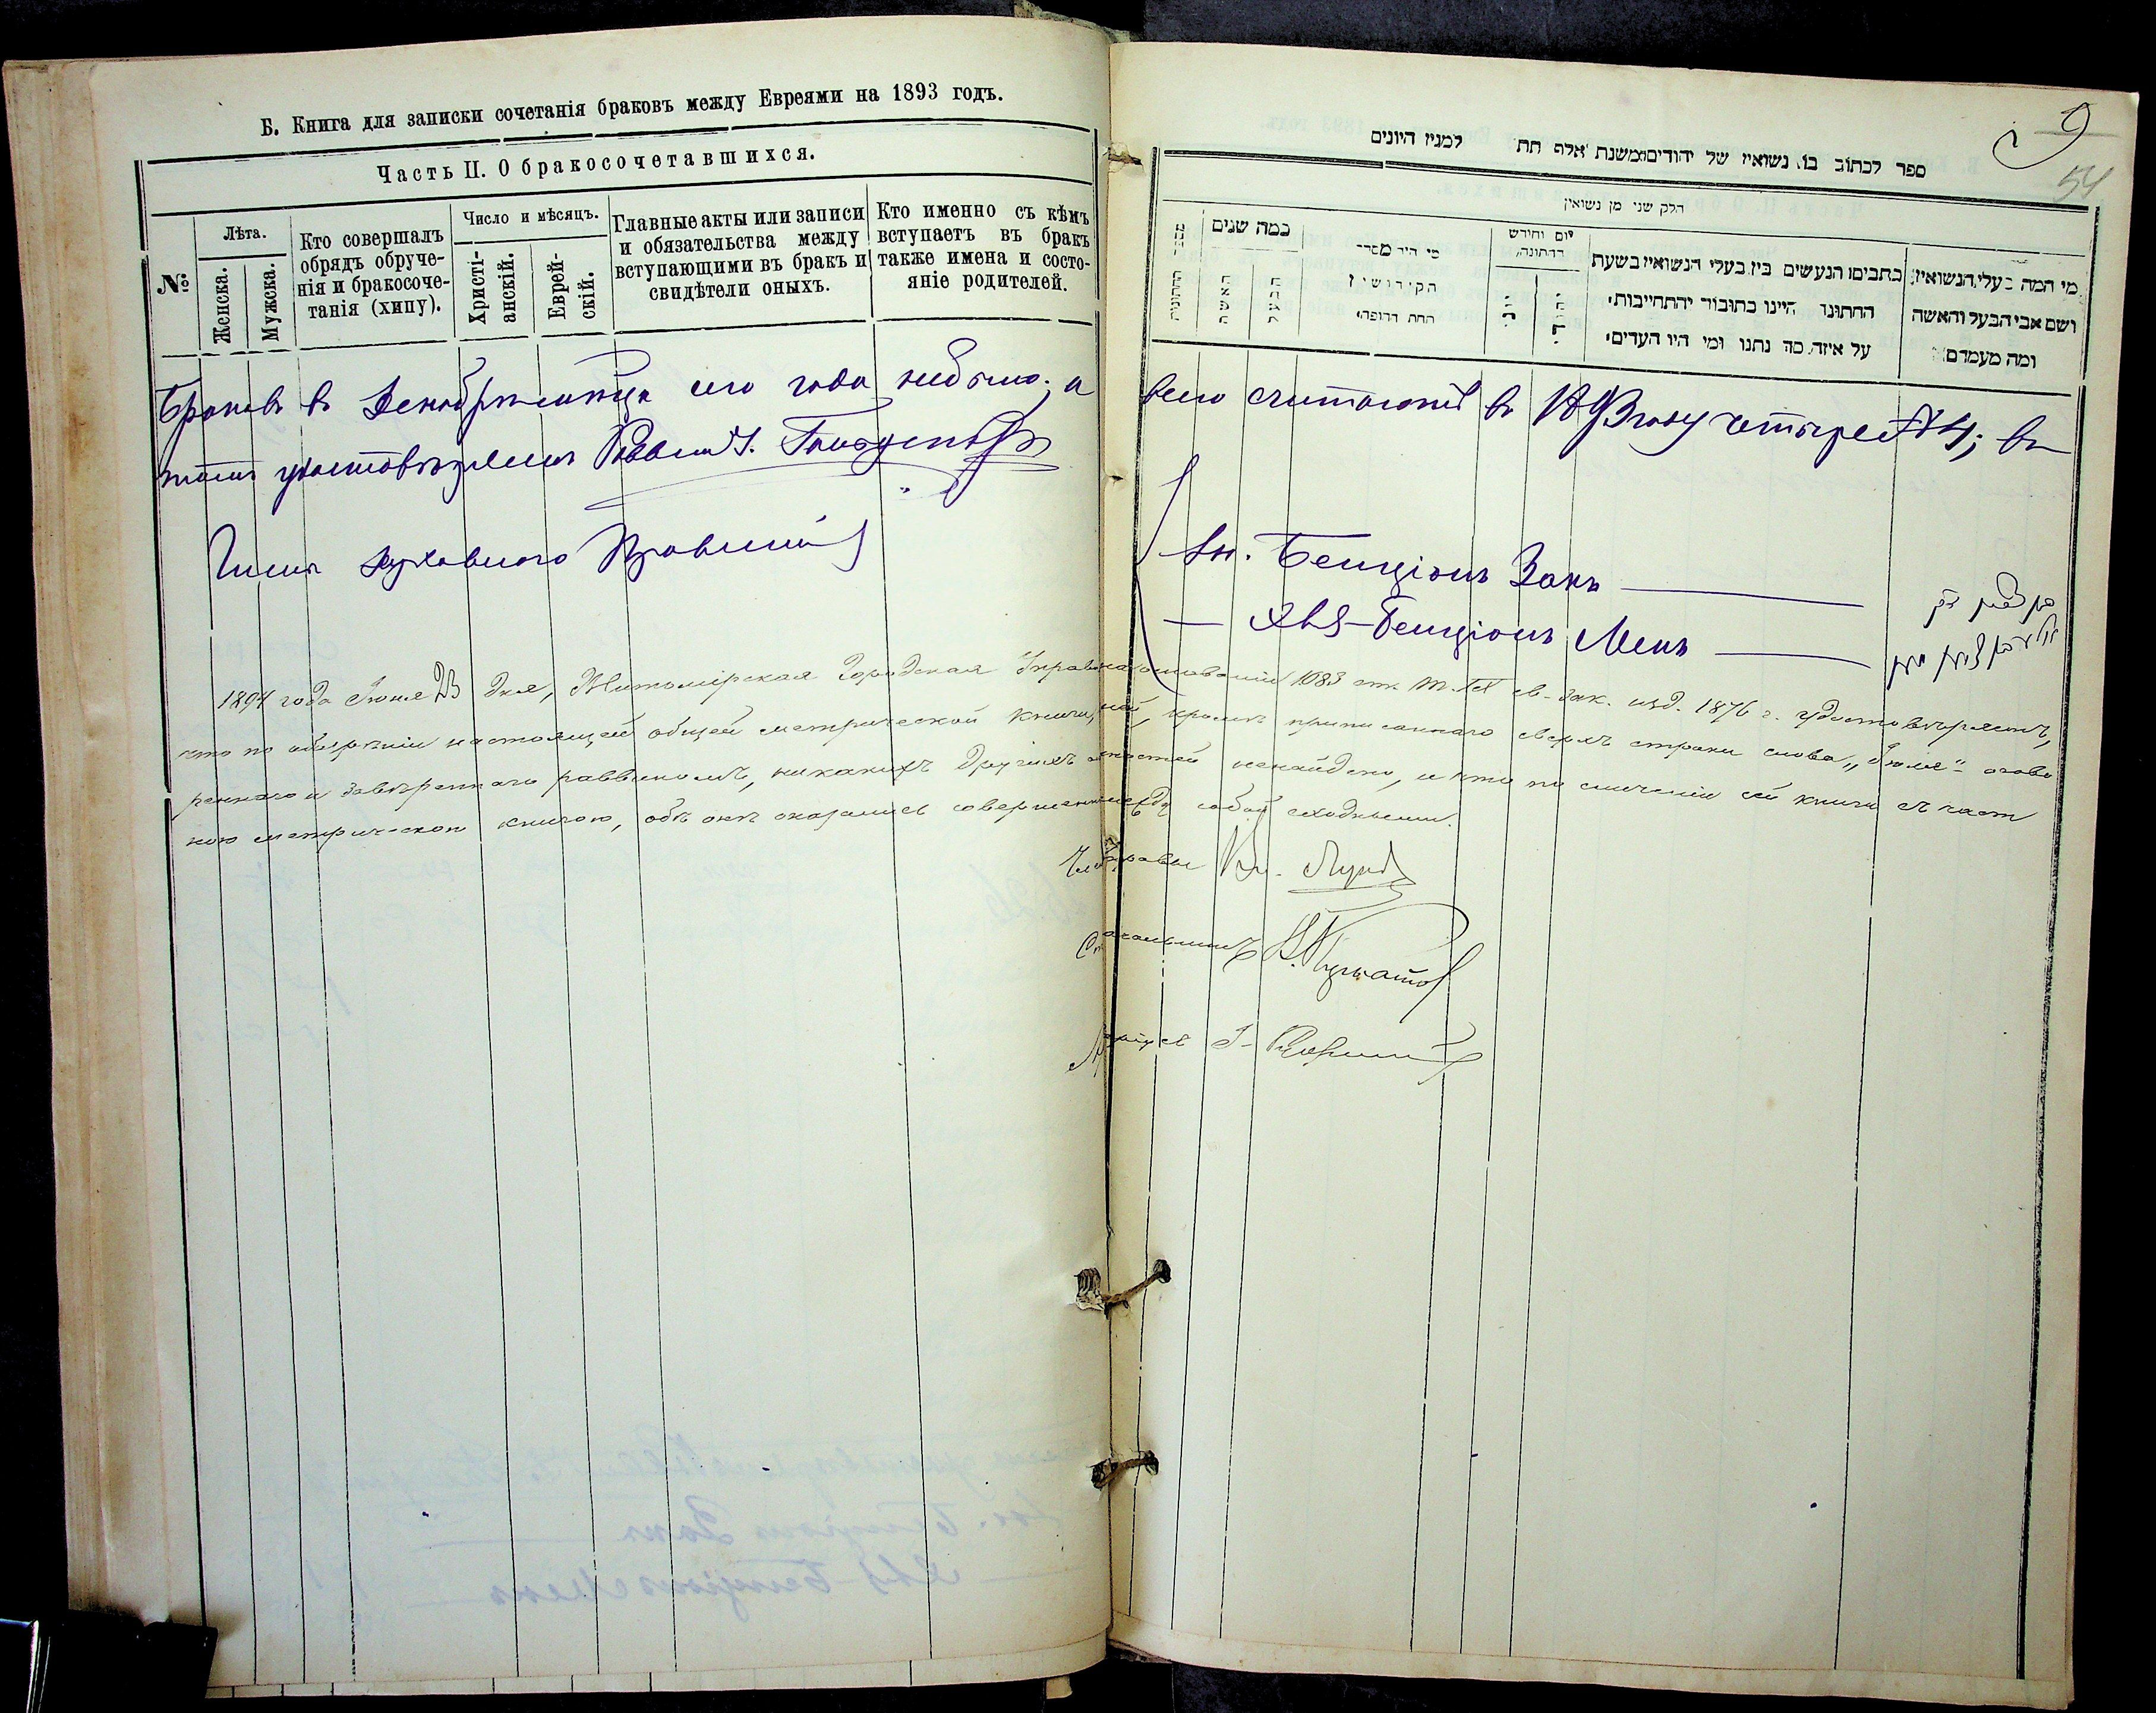 Б. Книга для записки сочетанія браковъ между Евреями на 1893 годъ.
Часть II. О бракосочетавшихся.
№
Лѣта.
Женска.
Мужска.
Кто совершалъ
обрядъ обруче-
нія и бракосоче-
танія (хипу).
Число и мѣсяцъ.
Христі-
анскій.
Еврей-
скій.
Главные акты или записи
и обязательства между
вступающими въ бракъ и
свидѣтели оныхъ.
Кто именно съ кѣмъ
вступаетъ въ бракъ
также имена и состо-
яніе родителей.
9
54
ספר לכתוב בו נשואין של יהודים משנת אלף תת למנין היונים
חלק שני מן נשואין
כמה שנים
האשה
הבעל
מי היה מסדר
הקידושין
תחת החופה
יום וחודש
החתונה
יוני
יהודי
בתבים הנעשים בין בעלי הנשואין בשעת
החתונה היינו כתובות והתחייבות
על איזה סך נתנו ומי היו העדים
מי המה בעלי הנשואין
ושם אבי הבעל והאשה
ומה מעמדם
Браковъ въ Декабрѣ мѣсяцѣ сего года небыло; а всего считается въ 1893 году четыре № 4; въ
томъ удостовѣряемъ Раввинъ
Члены Духовнаго Правленія
Бенціонъ Закъ
Бенціонъ Менъ
בן ציון זק
1894 года Іюня 23 дня, Житомірская Городская Управа на основаніи 1083 ст. т. IX св. зак. изд. 1876 г. удостовѣряетъ,
что по обозрѣніи настоящей общей метрической книги, въ ней, кромѣ приписаннаго сверхъ строки слова „Іюля“ огово-
реннаго и завѣреннаго раввиномъ, никакихъ другихъ неисправностей ненайдено, и что по сличеніи сей книги съ част-
ною метрическою книгою, обѣ онѣ оказались совершенно между собой сходными.
Членъ Управы